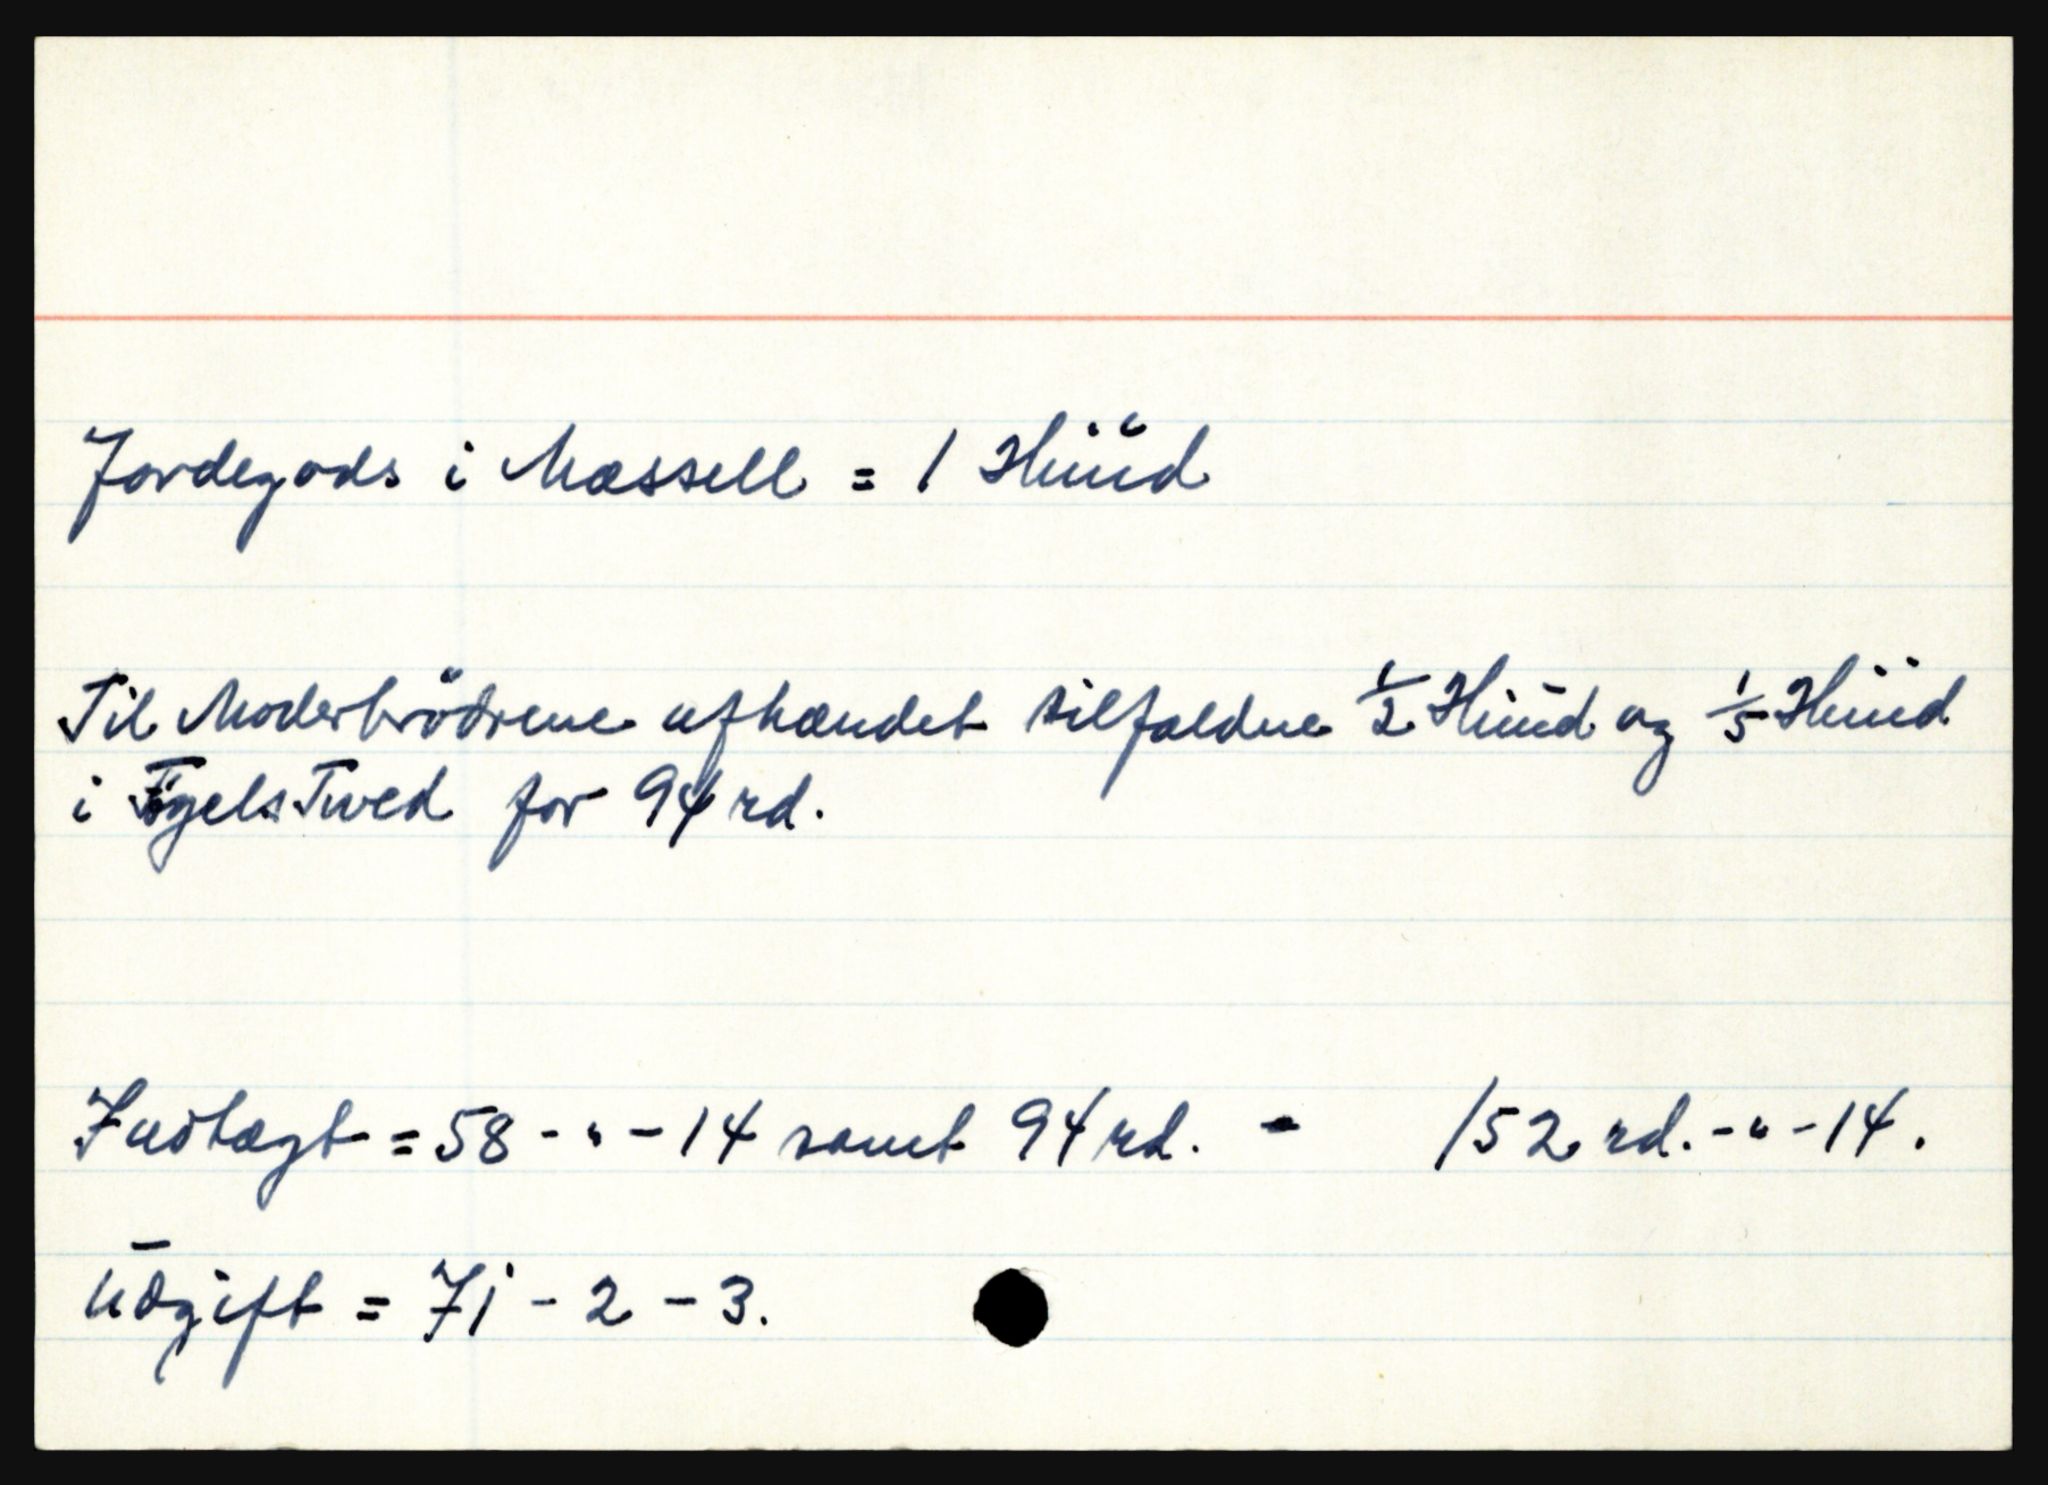 Jordegods i Mossell = 1 Hüüd
Til Moderbrödrene afhændet tilfaldne 1/2 Hüüd og 1/5 Hüüd
i Egels Tved for 94 rd.
Indtægt = 58 - " - 14 samt 94 rd. = 152 rd. - " - 14.
Udgift = 71 - 2 - 3.